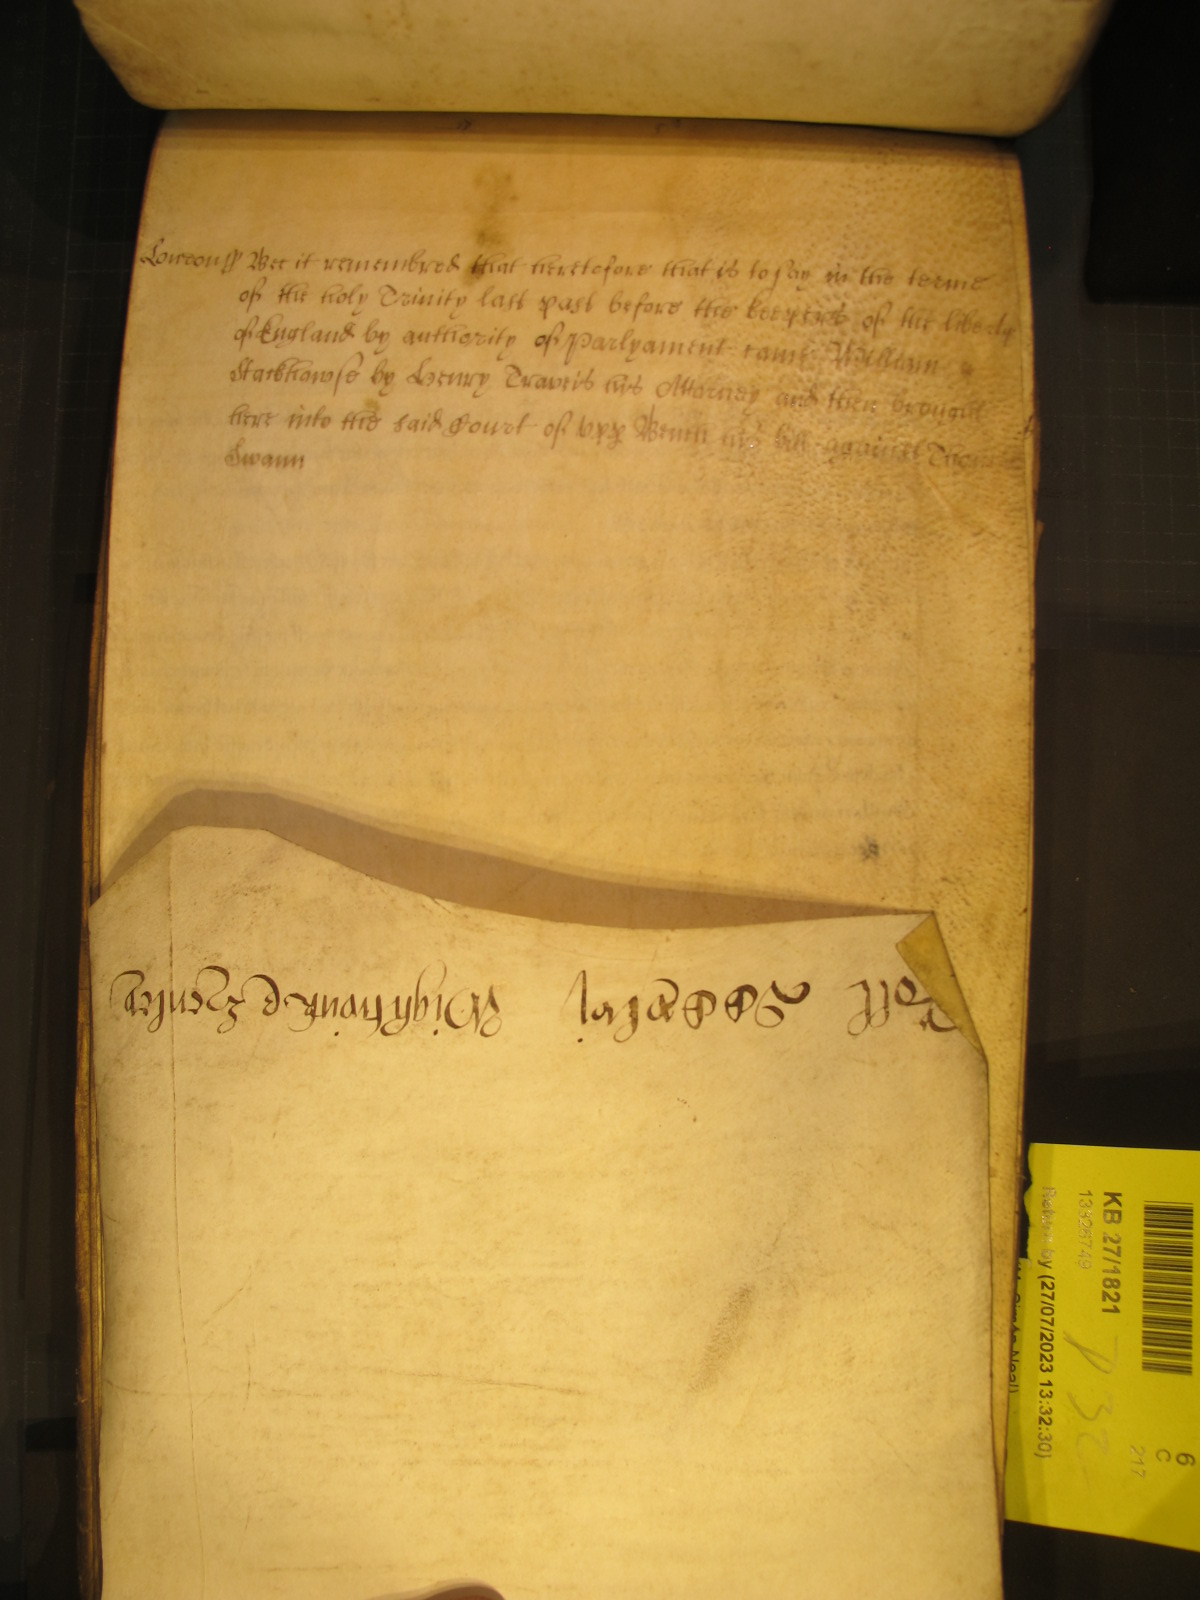 London ss Bee it remembred that heretofore that is to say in the terme
of the holy Trinity last past before the keepers of the liberty
of England by authority of Parlyament came William
Stackhowse by Henry Travers his Attorney and then brought
here into the said Court of vpp Bench his bill against Thomas
Swann
Roll
Wightwick &
KB 27/1821
13326749
Return by (27/07/2023 13:32:30)
6
C
217